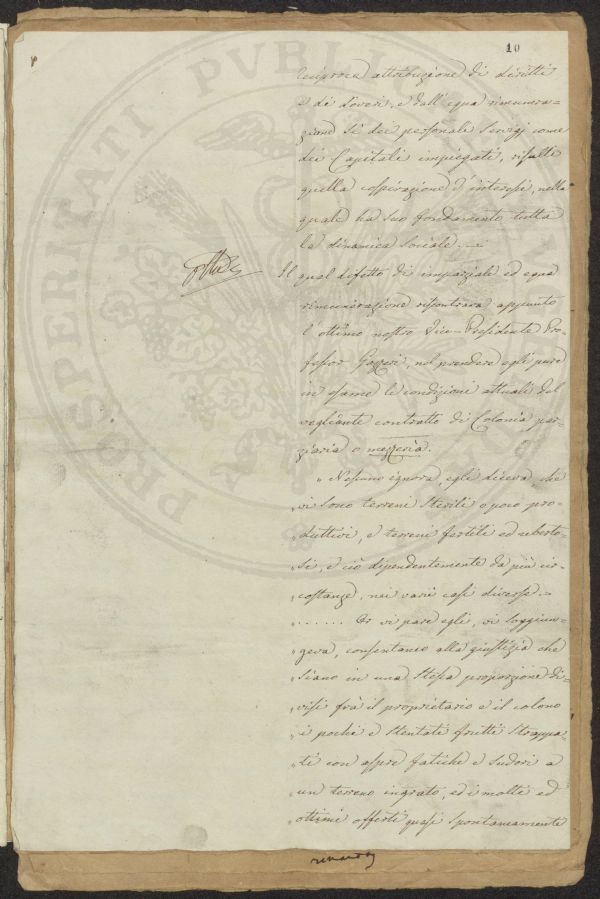 10
reciproca attribuzione di diritti
e di doveri, e dall'equa rimunera=
zione sì dei personali servigj come
dei Capitali impiegati, risulti
quella cospirazione d'interessi, nella
quale ha suo fondamento tutta
la dinamica sociale. —
Il qual difetto di imparziale ed equa
rimunerazione riscontrava appunto
l'ottimo nostro Vice-Presidente Pro=
fessor Gazzeri, nel prendere egli pure
in esame le condizioni attuali del
vegliante contratto di Colonia par=
ziaria o mezzeria.
" Nessuno ignora, egli diceva, che
" vi sono terreni sterili o poco pro=
" duttivi, e terreni fertili ed uberto=
" si, e ciò dipendentemente da più cir=
" costanze, nei varii casi diverse. —
" ...... Or vi pare egli, vi soggiun=
geva, consentaneo alla giustizia che
" siano in una stessa proporzione di=
" visi frà il proprietario e il colono
" i pochi e stentati frutti strappa=
" ti con aspre fatiche e sudori a
" un terreno ingrato, ed i molti ed
" ottimi offerti quasi spontaneamente
PROSPERITATI PVBLICAE